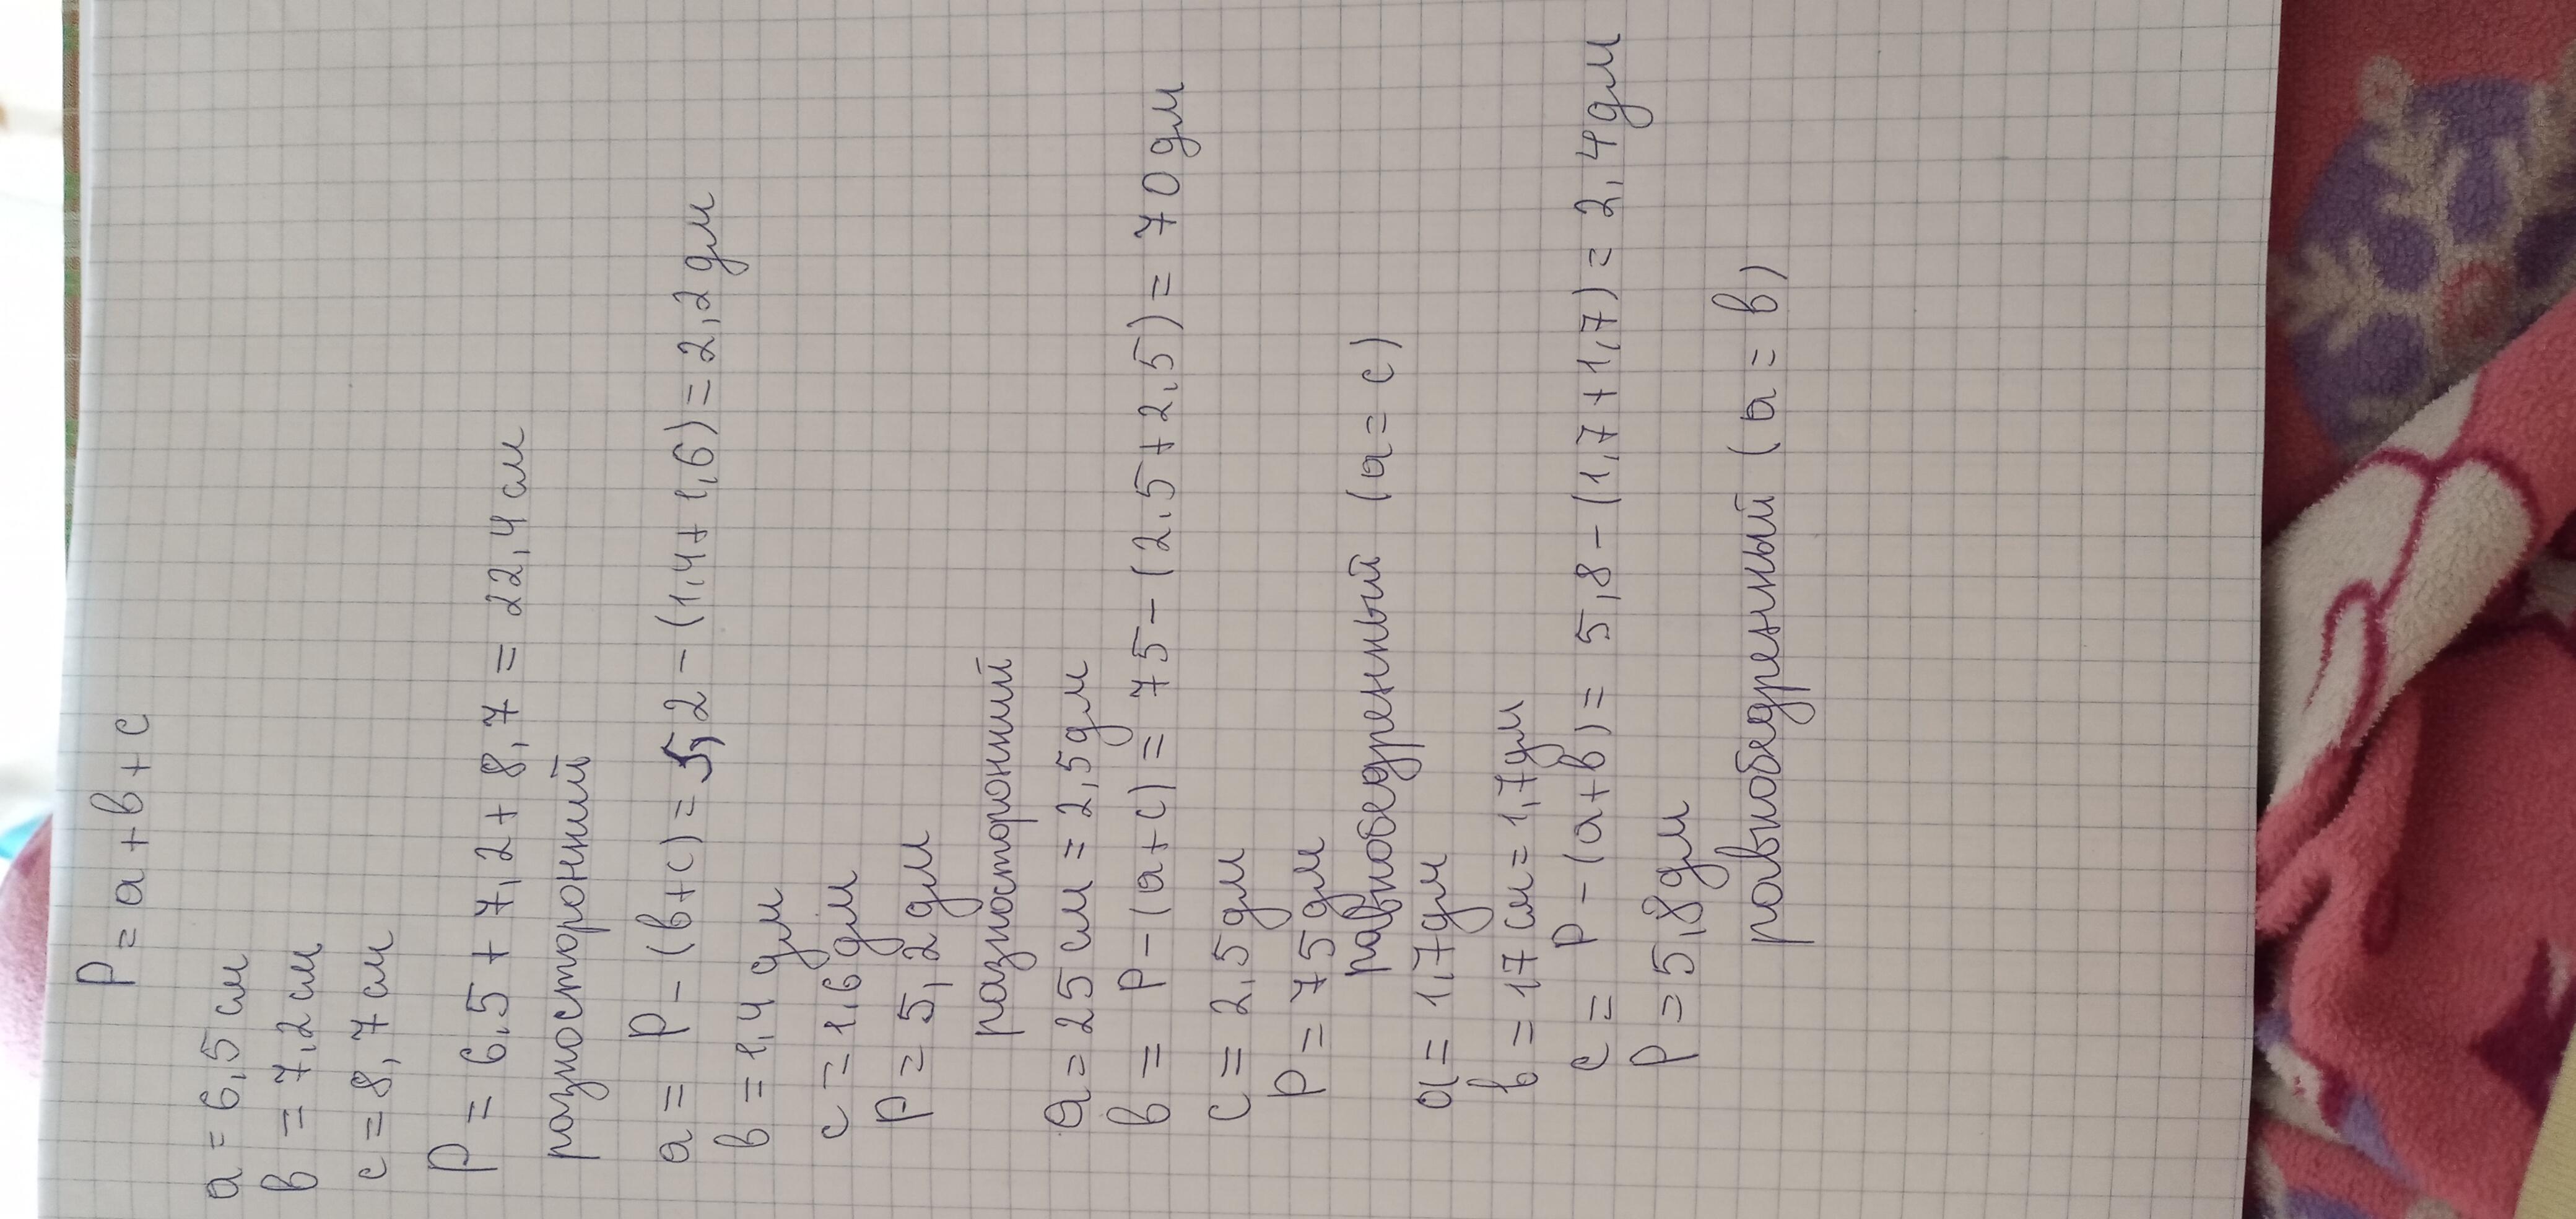 P = a + в + с
a = 6,5 см
в = 7,2 см
с = 8,7 см
P = 6,5 + 7,2 + 8,7 = 22,4 см
разносторонний
a = P - (в+с) = 5,2 - (1,4 + 1,6) = 2,2 дм
в = 1,4 дм
с = 1,6 дм
P = 5,2 дм
разносторонний
a = 25 см = 2,5 дм
в = P - (a+c) = 75 - (2,5 + 2,5) = 70 дм
с = 2,5 дм
P = 75 дм
равнобедренный (a = c)
a = 1,7 дм
в = 17 см = 1,7 дм
с = P - (a+в) = 5,8 - (1,7 + 1,7) = 2,4 дм
P = 5,8 дм
равнобедренный (a = в)